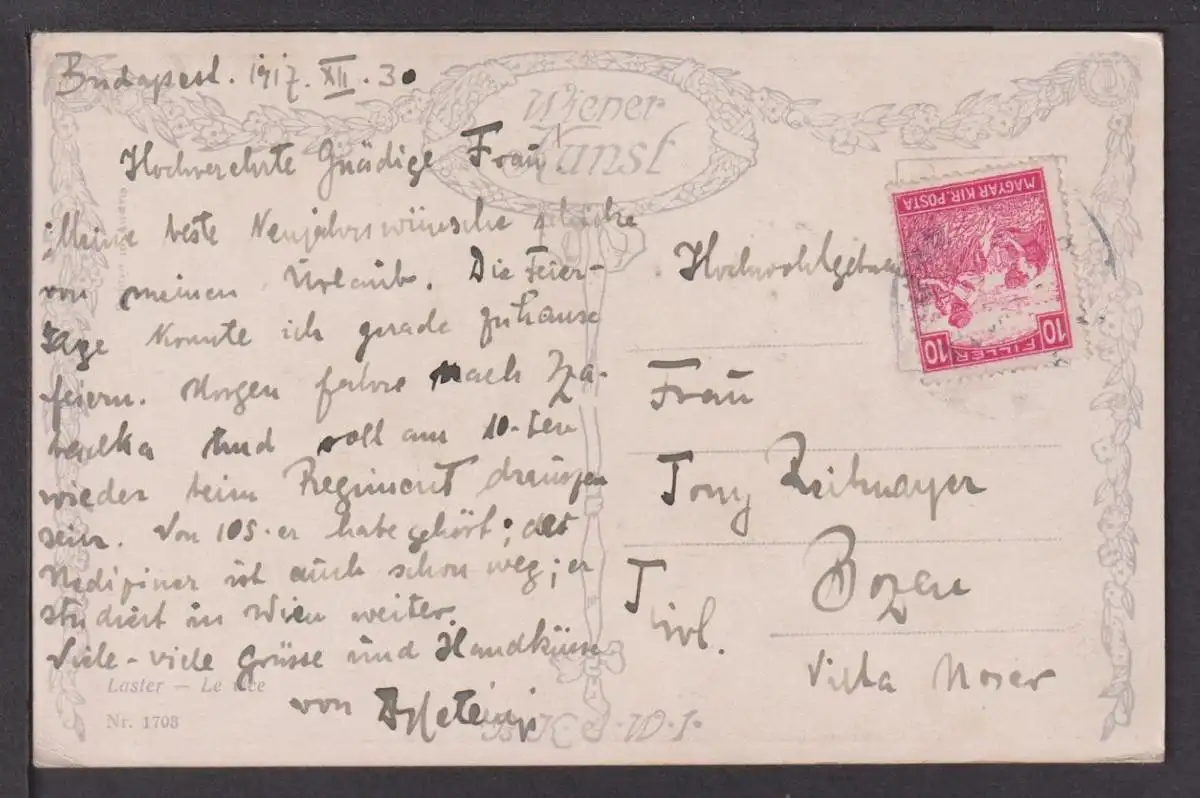 Budapest. 1917. XII. 30
Wiener
Kunst
Hochverehrte Gnädige Frau
Meine beste Neujahrswünsche schicke
von meinen Urlaub. Die Feier-
tage konnte ich gerade zuhause
feiern. Morgen fahre nach
und soll am 10-ten
wieder beim Regiment draussen
sein. Von 105-er habe gehört; der
Mediziner ist auch schon weg; er
studiert in Wien weiter.
Viele-viele Grüsse und Handküsse
von
Laster — Le
Nr. 1708
B.K.W.I.
MAGYAR KIR. POSTA
10 FILLÉR 10
Hochwohlgeboren
Frau
Tony Reitmayer
Bozen
Tirol.
Villa Moser